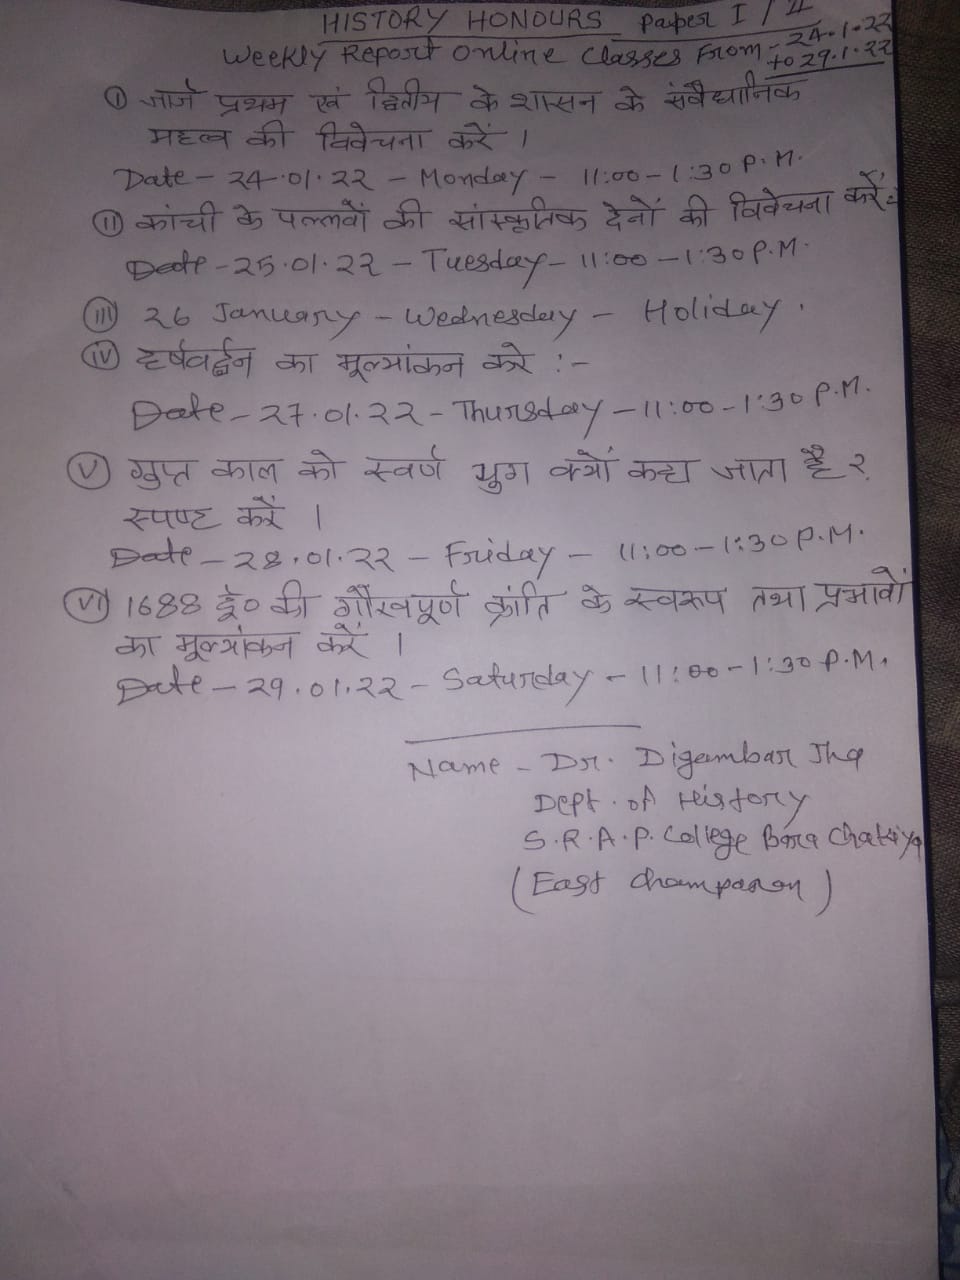 HISTORY HONOURS Paper I / II
Weekly Report Online Classes From - 24.1.22
to 29.1.22
(I) जार्ज प्रथम एवं द्वितीय के शासन के संवैधानिक
महत्व की विवेचना करें ।
Date - 24.01.22 - Monday - 11:00 - 1:30 P.M.
(II) कांची के पल्लवों की सांस्कृतिक देनों की विवेचना करें :-
Date - 25.01.22 - Tuesday - 11:00 - 1:30 P.M.
(III) 26 January - Wednesday - Holiday .
(IV) हर्षवर्द्धन का मूल्यांकन करे :-
Date - 27.01.22 - Thursday - 11:00 - 1:30 P.M.
(V) गुप्त काल को स्वर्ण युग क्यों कहा जाता है ?
स्पष्ट करें ।
Date - 28.01.22 - Friday - 11:00 - 1:30 P.M.
(VI) 1688 ई० की गौरवपूर्ण क्रांति के स्वरूप तथा प्रभावों
का मूल्यांकन करें ।
Date - 29.01.22 - Saturday - 11:00 - 1:30 P.M.
Name - Dr. Digambar Jha
Dept. of History
S.R.A.P. College Bara Chakiya
(East Champaran)